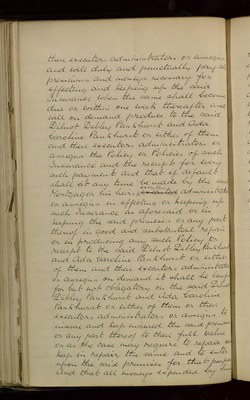 their executors administrators or assigns
and will duly and punctually pay all
premiums and moneys necessary for
effecting and keeping up the said
Insurance when the same shall become
due or within one week thereafter and
will on demand produce to the said
Pankhurst and Ada
Caroline Pankhurst or either of them
and their executors administrators or
assigns the Policy or Policies of such
Insurance and the receipt for every
such payment and that if default
shall at any time be made by the
Mortgagor his heirs executors administrators
or assigns in effecting or keeping up
such Insurance as aforesaid or in
keeping the said premises or any part
thereof in good and substantial repair
or in producing any such Policy or
receipt to the said Pankhurst
and Ada Caroline Pankhurst or either
of them and their executors administrators
or assigns on demand it shall be lawful
for but not obligatory on the said
Pankhurst and Ada Caroline
Pankhurst or either of them or their
executors administrators or assigns to
insure and keep insured the said premises
or any part thereof to their full value
or as the case may require to repair and
keep in repair the same and to enter
upon the said premises for that purpose
And that all moneys expended by